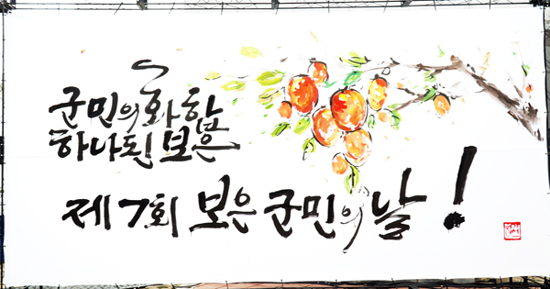 군민의 화합
하나된 보은
제7회 보은 군민의 날!